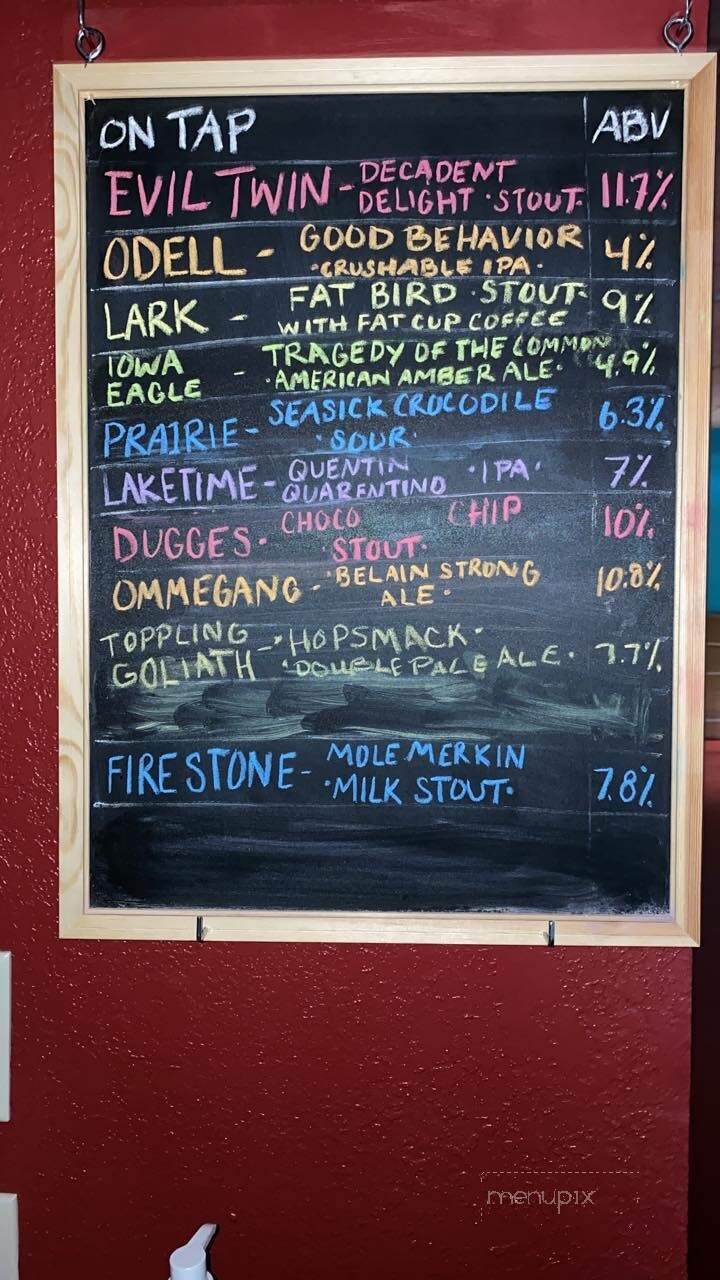 ON TAP ABV
EVIL TWIN - DECADENT
DELIGHT · STOUT · 11.7%
ODELL - GOOD BEHAVIOR
· CRUSHABLE IPA · 4%
LARK - FAT BIRD · STOUT ·
WITH FAT CUP COFFEE 9%
IOWA
EAGLE - TRAGEDY OF THE COMMON
· AMERICAN AMBER ALE · 4.9%
PRAIRIE - SEASICK CROCODILE
· SOUR · 6.3%
LAKETIME - QUENTIN
QUARENTINO · IPA · 7%
DUGGES · CHOCO CHIP
· STOUT · 10%
OMMEGANG - · BELAIN STRONG
ALE · 10.8%
TOPPLING
GOLIATH - · HOPSMACK ·
· DOUBLE PALE ALE · 7.7%
FIRESTONE - MOLE MERKIN
· MILK STOUT · 7.8%
menupix